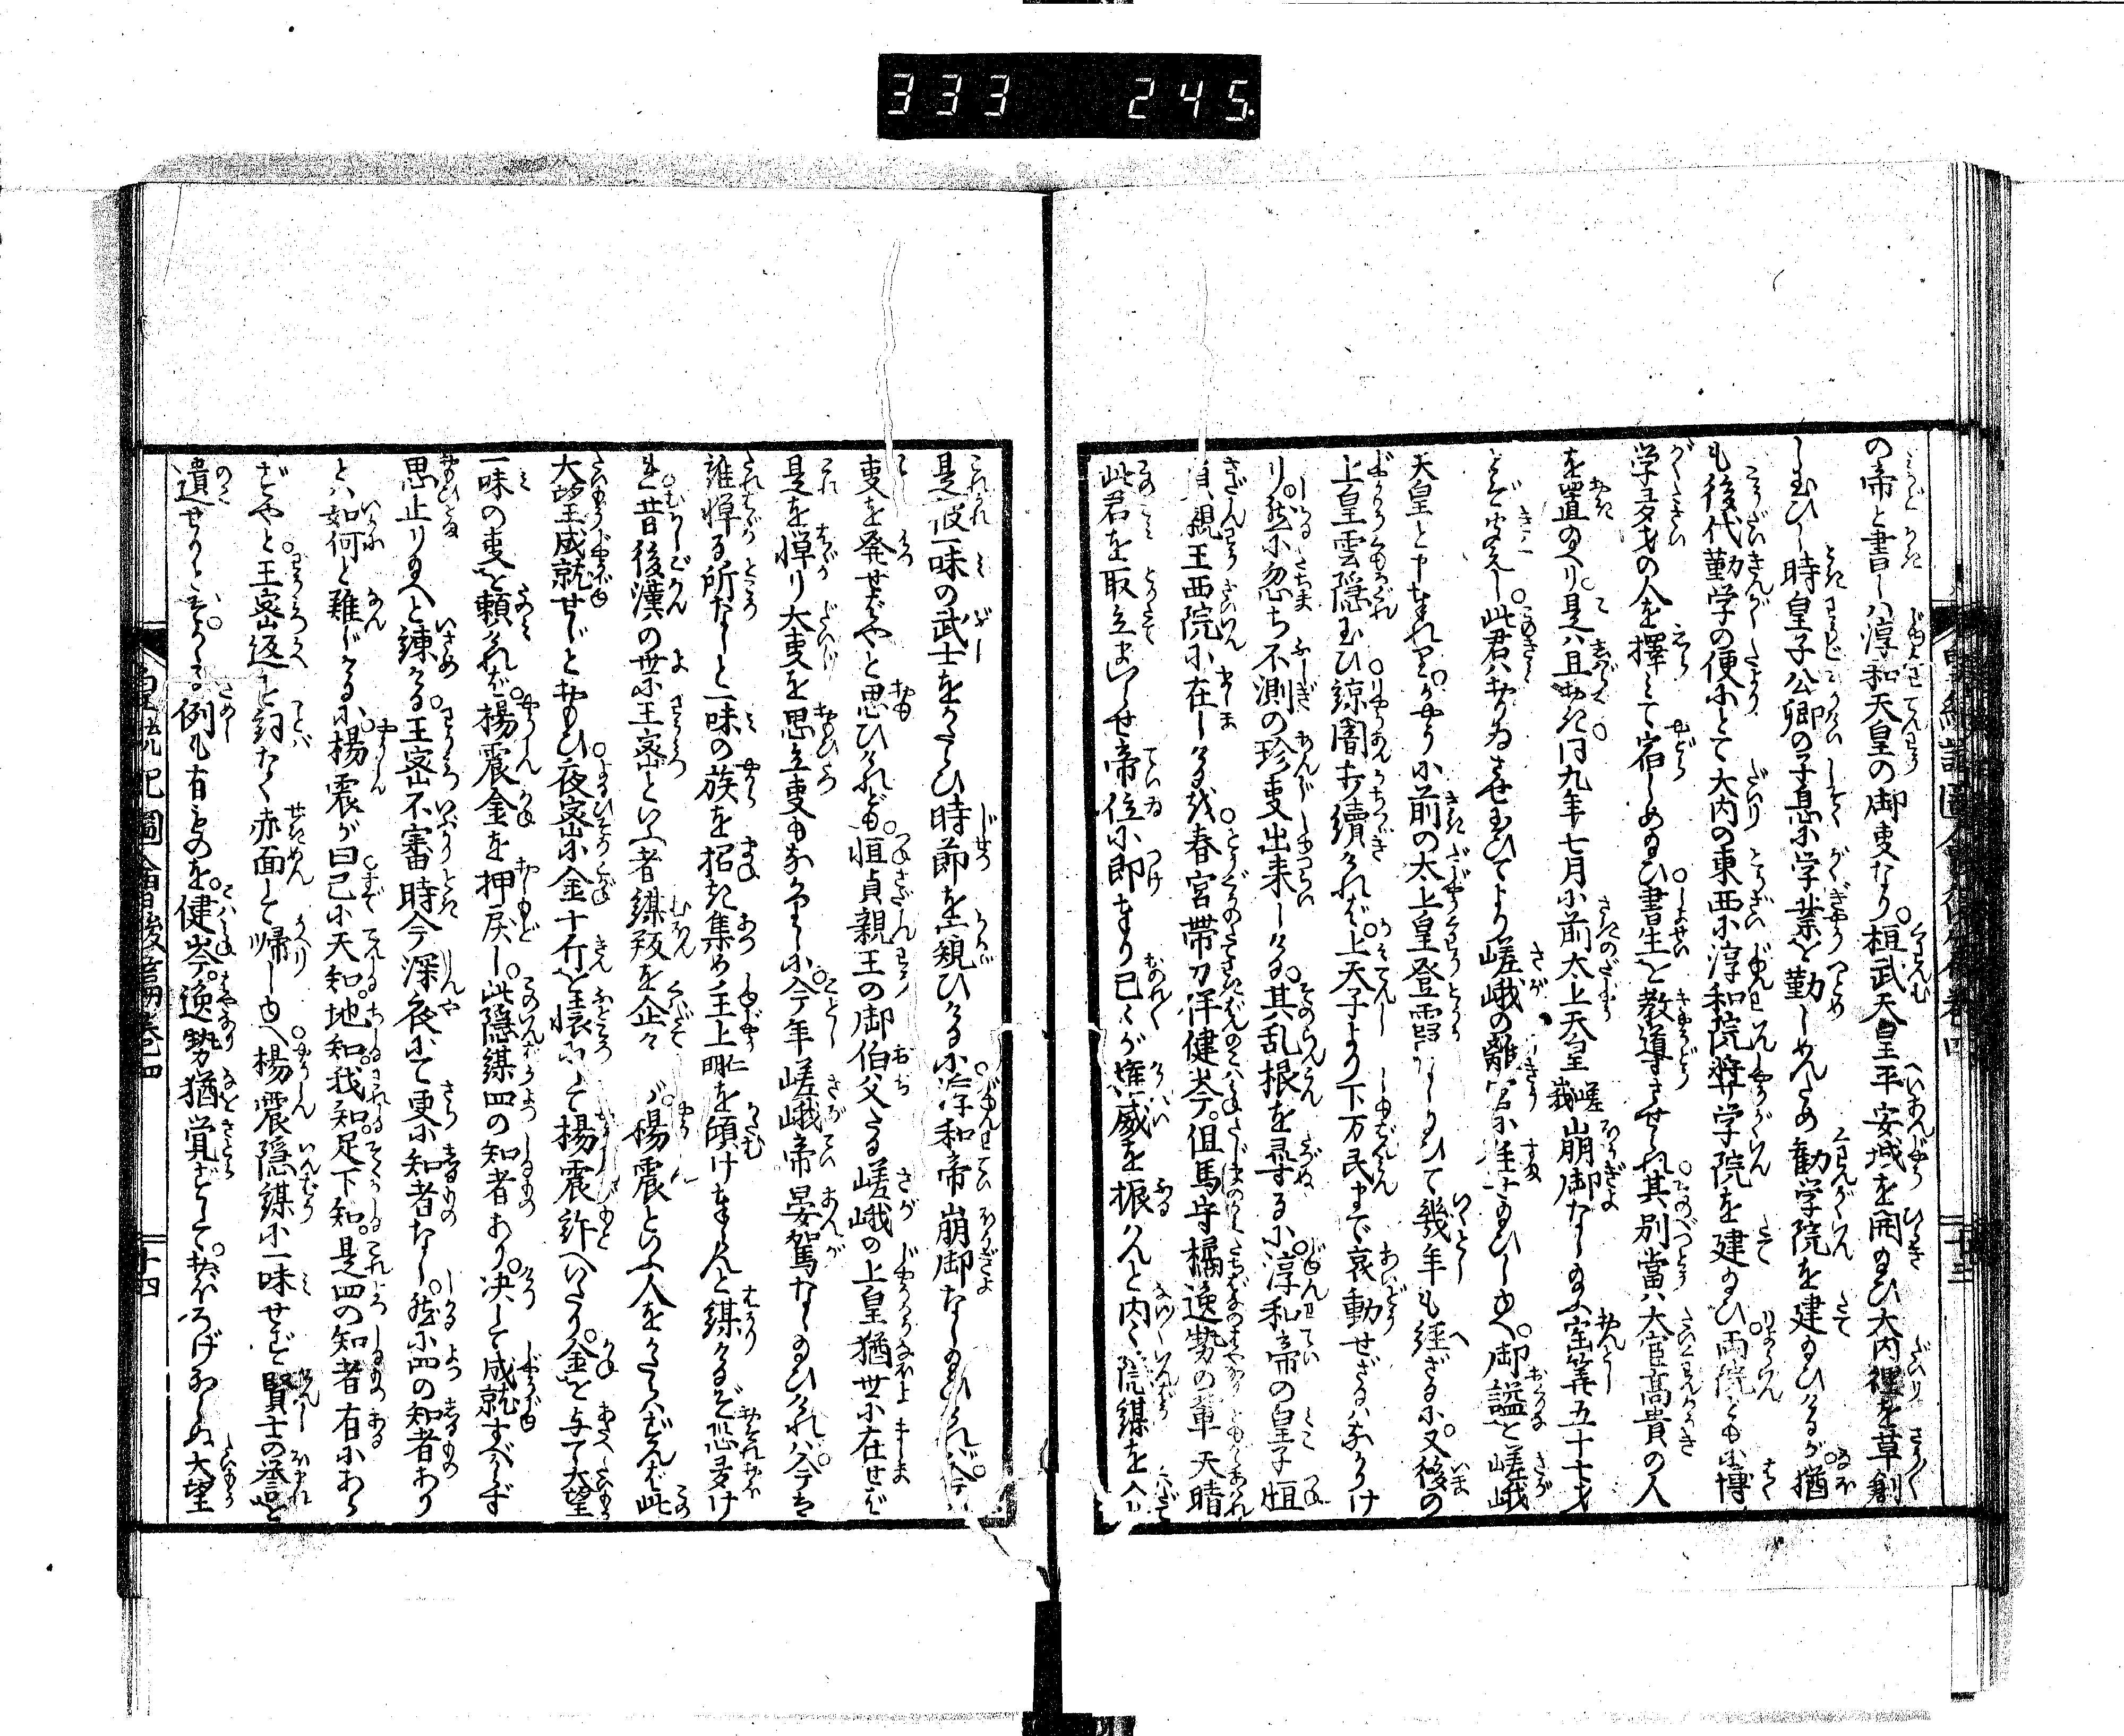 333 245.
の帝と書しハ淳和天皇の御事なり。桓武天皇平安城を開給ひ大内裡を草創
し玉ひし時皇子公卿の子息に学業を勤しめんため勧学院を建給ひけるが猶
も後代勤学の便にとて大内の東西に淳和院奨学院を建給ひ両院ともに博
学多才の人を擇ミて宿しめ給ひ書生を教導させらる其別當ハ大臣高貴の人
を置給へり。是ハ且おき。同九年七月に前太上天皇嵯峨崩御なし給ふ宝算五十七才
とぞ聞えし。此君ハおりゐさせ玉ひてより嵯峨の離宮に住せ給ひしゆへ。御謚を嵯峨
天皇と申奉れり。かやうに前の太上皇登霞なし給ひて幾年も経ざるに。又後の
上皇雲隠玉ひ。諒闇打續けれバ。上天子より下万民まで哀動せざるハなかりけ
り。然に忽ち不測の珍事出来しける。其乱根を尋するに。淳和帝の皇子恒
貞親王西院に在しけるを。春宮帶刀伴健岑。但馬守橘逸勢の輩天晴
此君を取立まいらせ帝位に即奉り己々が権威を振はんと内々隠謀を企
是彼一味の武士をかたらひ時節を窺ひける小淳和帝崩御なし給ひけれバ。今
事を発せばやと思ひけれども。恒貞親王の御伯父たる嵯峨の上皇猶世に在せバ
是を憚り大事を思立事もなかりしに。今年嵯峨帝晏駕なし給ひけれハ。今ハ
誰憚る所なしと一味の族を招き集め主上仁明を傾け奉らんと謀けるぞ恐多け
れ。昔後漢の世に王密といふ者謀叛を企々が。楊震といふ人をかたらハざれバ此
大望成就せじとおもひ。夜密に金十斤を懐にして楊震許へいたり。金を与て大望
一味の事を頼けれバ。楊震金を押戻し。此隠謀四の知者あり。決して成就すべからず
思止り給へと諫ける。王密不審時今深夜にて更に知者なし。然に四の知者あり
とハ如何と難じけるに。楊震が曰已に天知。地知。我知。足下知。是四の知者有にあら
ずやと。王密返す詞なく赤面して帰しゆへ。楊震隠謀に一味せず賢士の誉を
遺せりとぞ。かゝる例も有ものを。健岑。逸勢猶覚ずして。おぼろげならぬ大望
皇統記圖會後篇巻四
十四